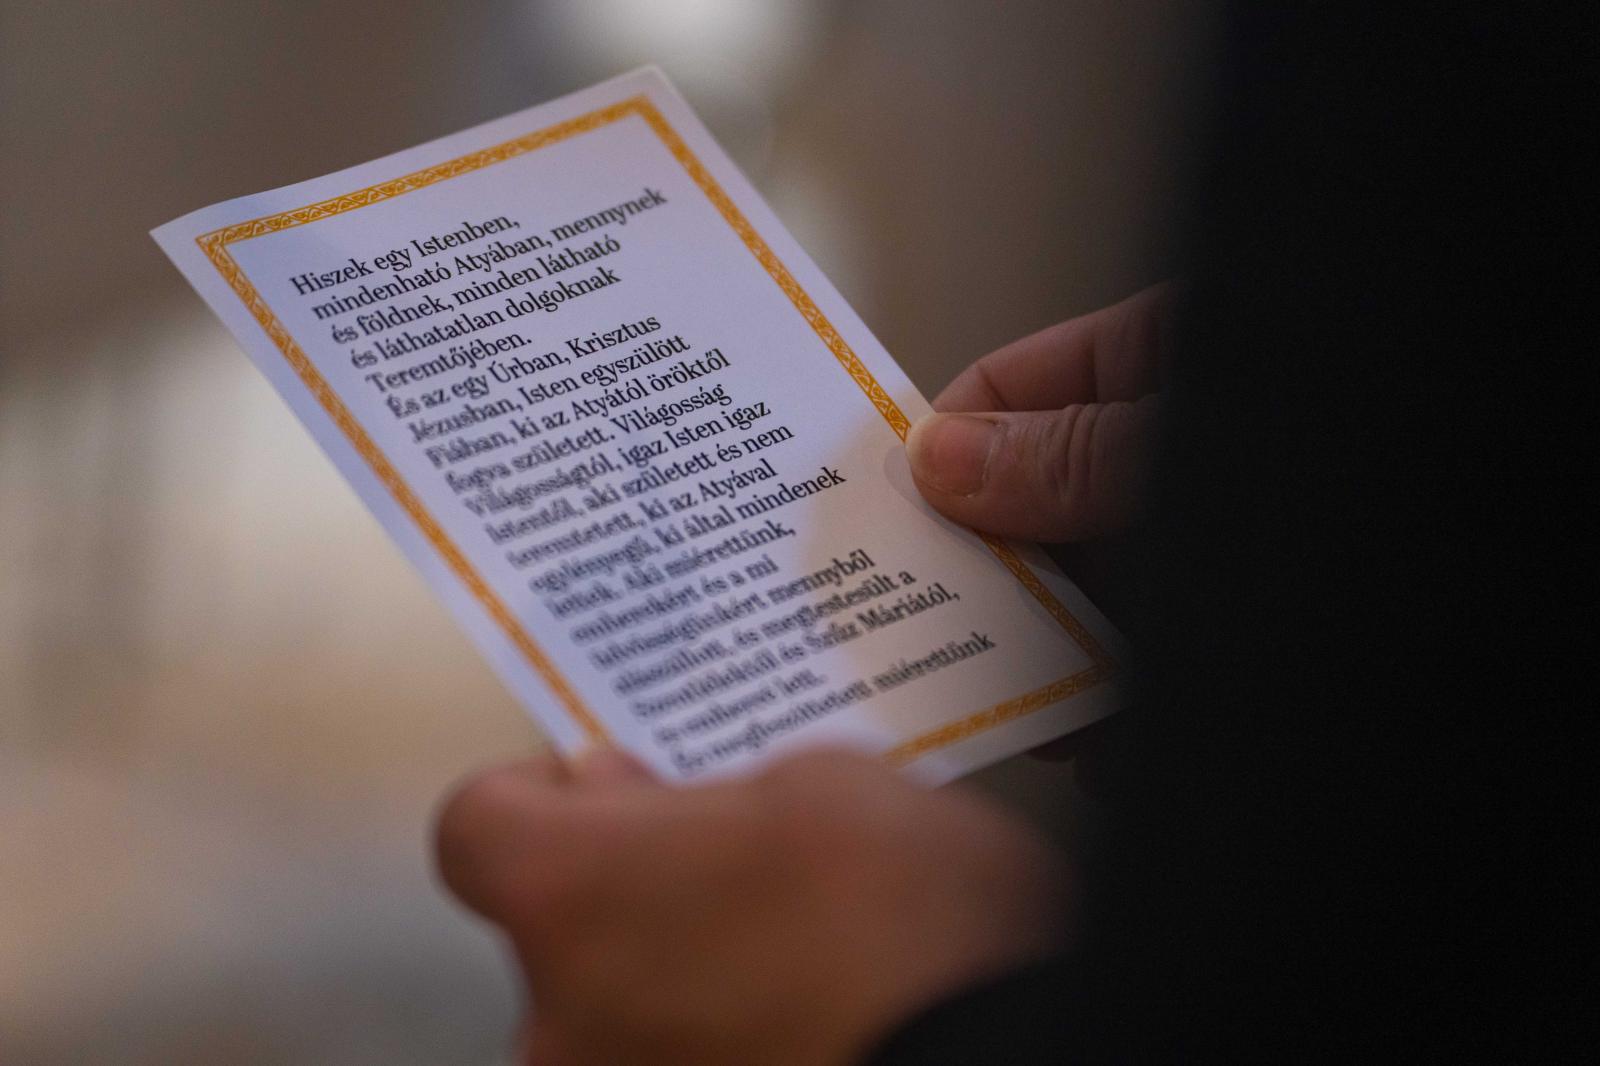 Hiszek egy Istenben,
mindenható Atyában, mennynek
és földnek, minden látható
és láthatatlan dolgoknak
Teremtőjében.
És az egy Úrban, Krisztus
Jézusban, Isten egyszülött
Fiában, ki az Atyától öröktől
fogva született. Világosság
Világosságtól, igaz Isten igaz
Istentől, aki született és nem
teremtetett, ki az Atyával
egylényegű, ki által mindenek
lettek. Aki miérettünk,
emberekért és a mi
üdvösségünkért mennyből
alászállott, és megtestesült a
Szentlélektől és Szűz Máriától,
és emberré lett.
És megfeszíttetett miérettünk